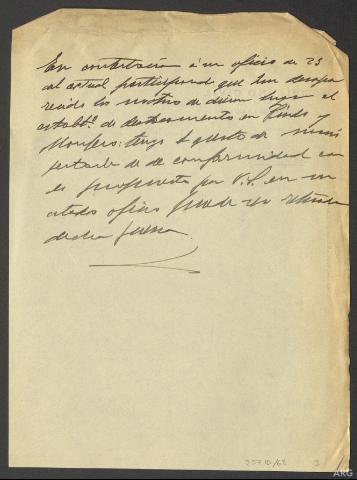 En contestación á su oficio de 23
del actual participando que han desapa
recido los motivos de dieron lugar al
establto. de destacamento en y
Monfero: tengo el gusto de mani
festarle de conformidad con
lo propuesto por V.S. en su
citado oficio puede ser retirada
dicha fuerza.
35710/62 3
ARG